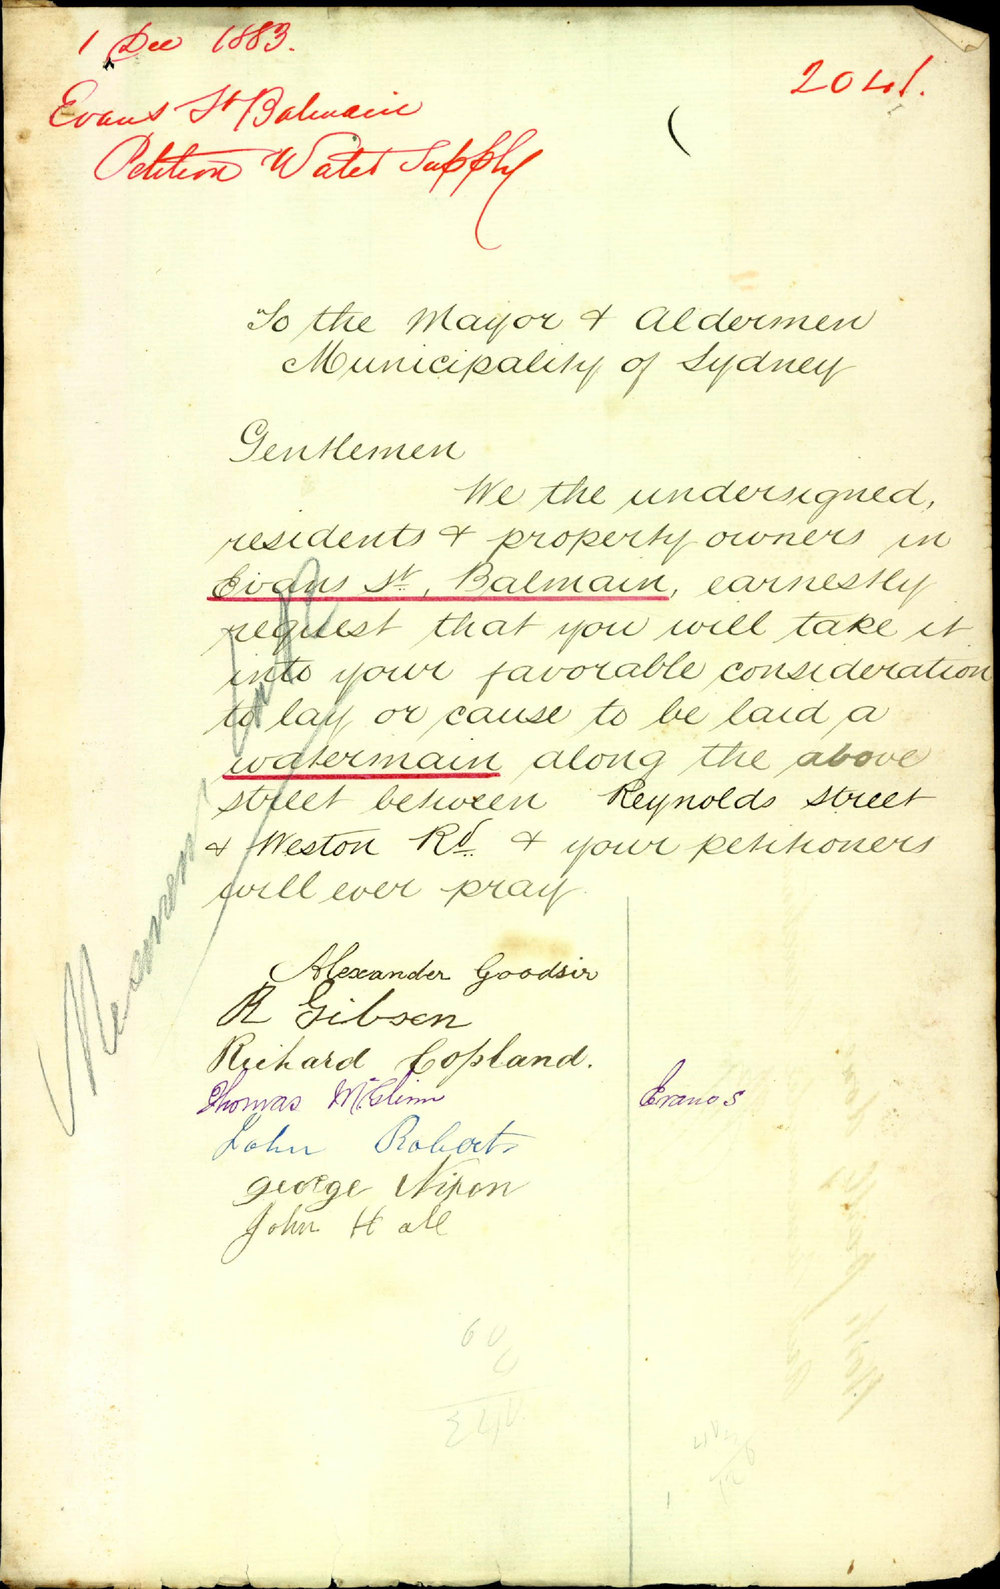 1 Dec 1883.
2041.
Evans St Balmain
Petition Water Supply
To the Mayor & Aldermen
Municipality of Sydney
Gentlemen
We the undersigned,
residents & property owners in
Evans St, Balmain, earnestly
request that you will take it
into your favorable consideration
to lay or cause to be laid a
watermain along the above
street between Reynolds street
& Weston Rd. & your petitioners
will ever pray.
Alexander Goodsir
R Gibson
Richard Copland.
Thomas McGlinn
John Roberts
George Nixon
John Hall